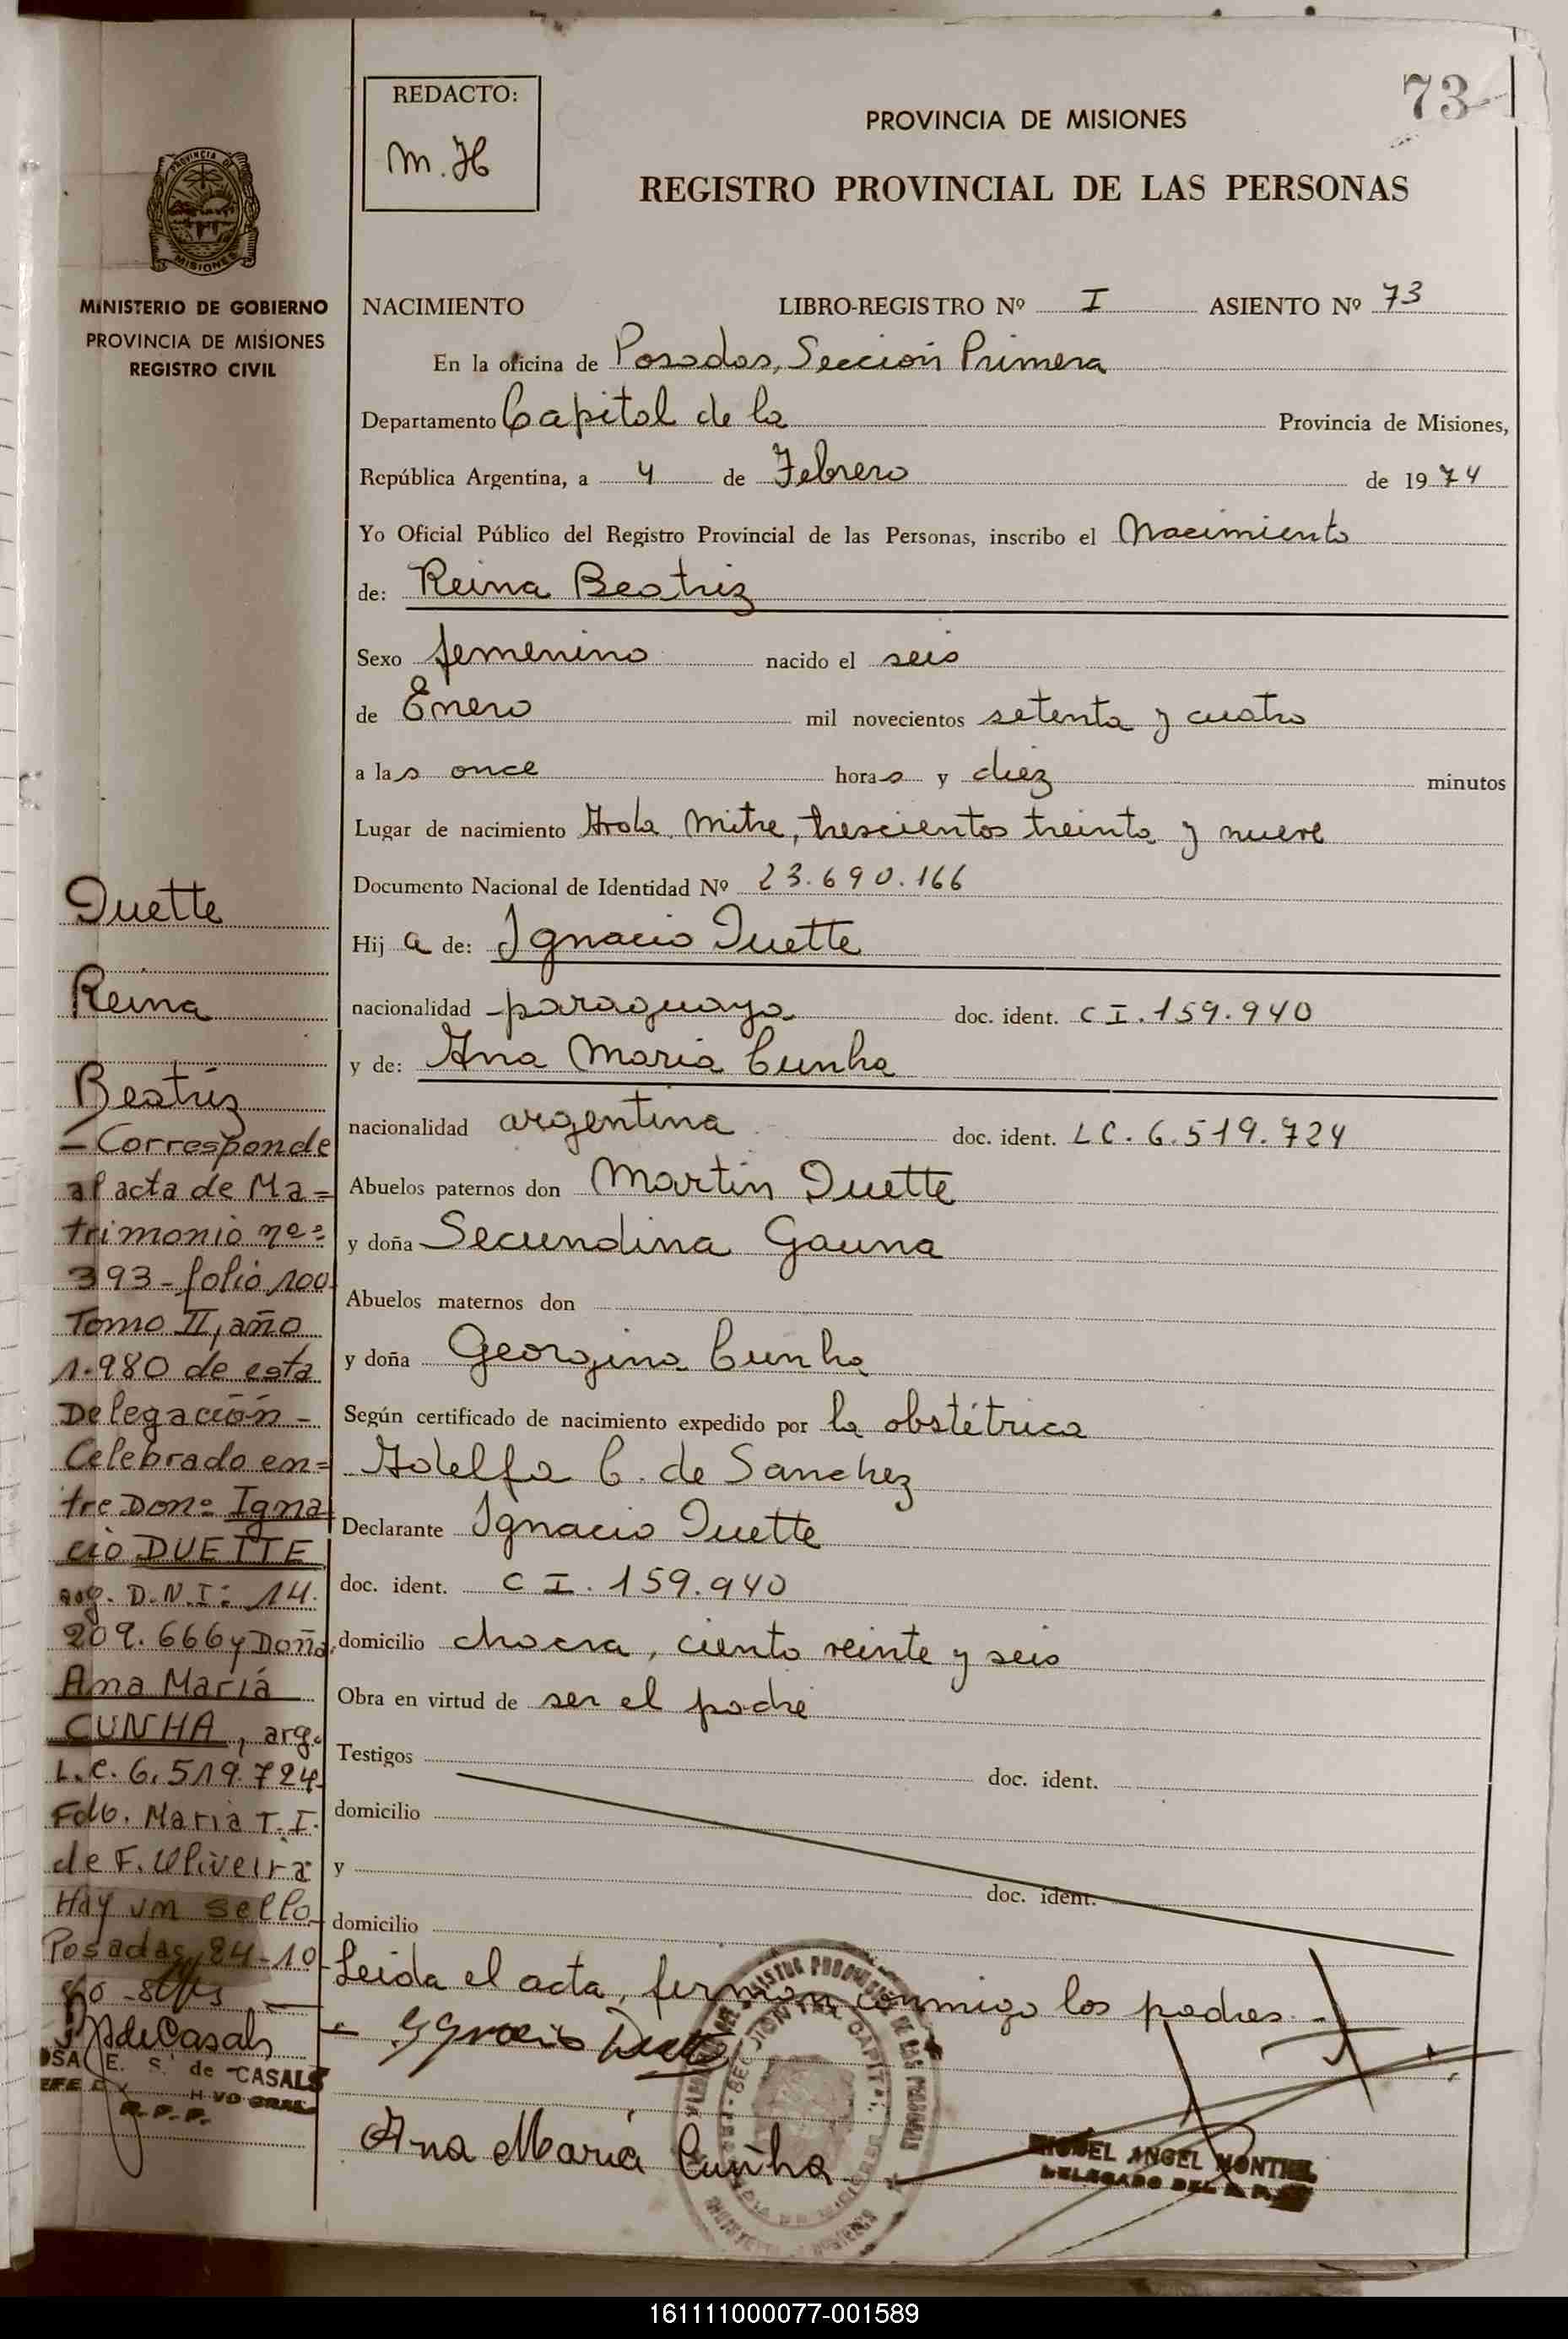 73
REDACTO:
M.H
PROVINCIA DE MISIONES
REGISTRO PROVINCIAL DE LAS PERSONAS
PROVINCIA DE
MISIONES
MINISTERIO DE GOBIERNO
PROVINCIA DE MISIONES
REGISTRO CIVIL
NACIMIENTO LIBRO-REGISTRO Nº I ASIENTO Nº 73
En la oficina de Posadas, Sección Primera
Departamento Capital de la Provincia de Misiones,
República Argentina, a 4 de Febrero de 1974
Yo Oficial Público del Registro Provincial de las Personas, inscribo el Nacimiento
de: Reina Beatriz
Sexo femenino nacido el seis
de Enero mil novecientos setenta y cuatro
a las once horas y diez minutos
Lugar de nacimiento Avda. Mitre, trescientos treinta y nueve
Documento Nacional de Identidad Nº 23.690.166
Hija de: Ignacio Duette
nacionalidad paraguaya doc. ident. C I. 159.940
y de: Ana Maria Cunha
nacionalidad argentina doc. ident. L C. 6.519.724
Abuelos paternos don Martin Duette
y doña Secundina Gauna
Abuelos maternos don
y doña Georgina Cunha
Según certificado de nacimiento expedido por la obstétrica
Adelfa C. de Sanchez
Declarante Ignacio Duette
doc. ident. C I. 159.940
domicilio chacra, ciento veinte y seis
Obra en virtud de ser el padre
Testigos doc. ident.
domicilio
y doc. ident.
domicilio
Leida el acta, firman conmigo los padres.-
Ignacio Duette
Ana Maria Cunha
MIGUEL ANGEL MONTIEL
DELEGADO DEL R.P.
Duette
Reina
Beatriz
- Corresponde
al acta de Ma=
trimonio nº=
393 - folio 100
Tomo II, año
1.980 de esta
Delegación -
Celebrado en=
tre Don= Igna
cio DUETTE
arg. D.N.I= 14.
209.666 y Doña
Ana María
CUNHA, arg.
L.C. 6.519.724
Fdo. Maria T. I.
de F. Oliveira
Hay un sello
Posadas, 24-10
80
de Casals
E. S. de CASALS
R.P.P.
161111000077-001589